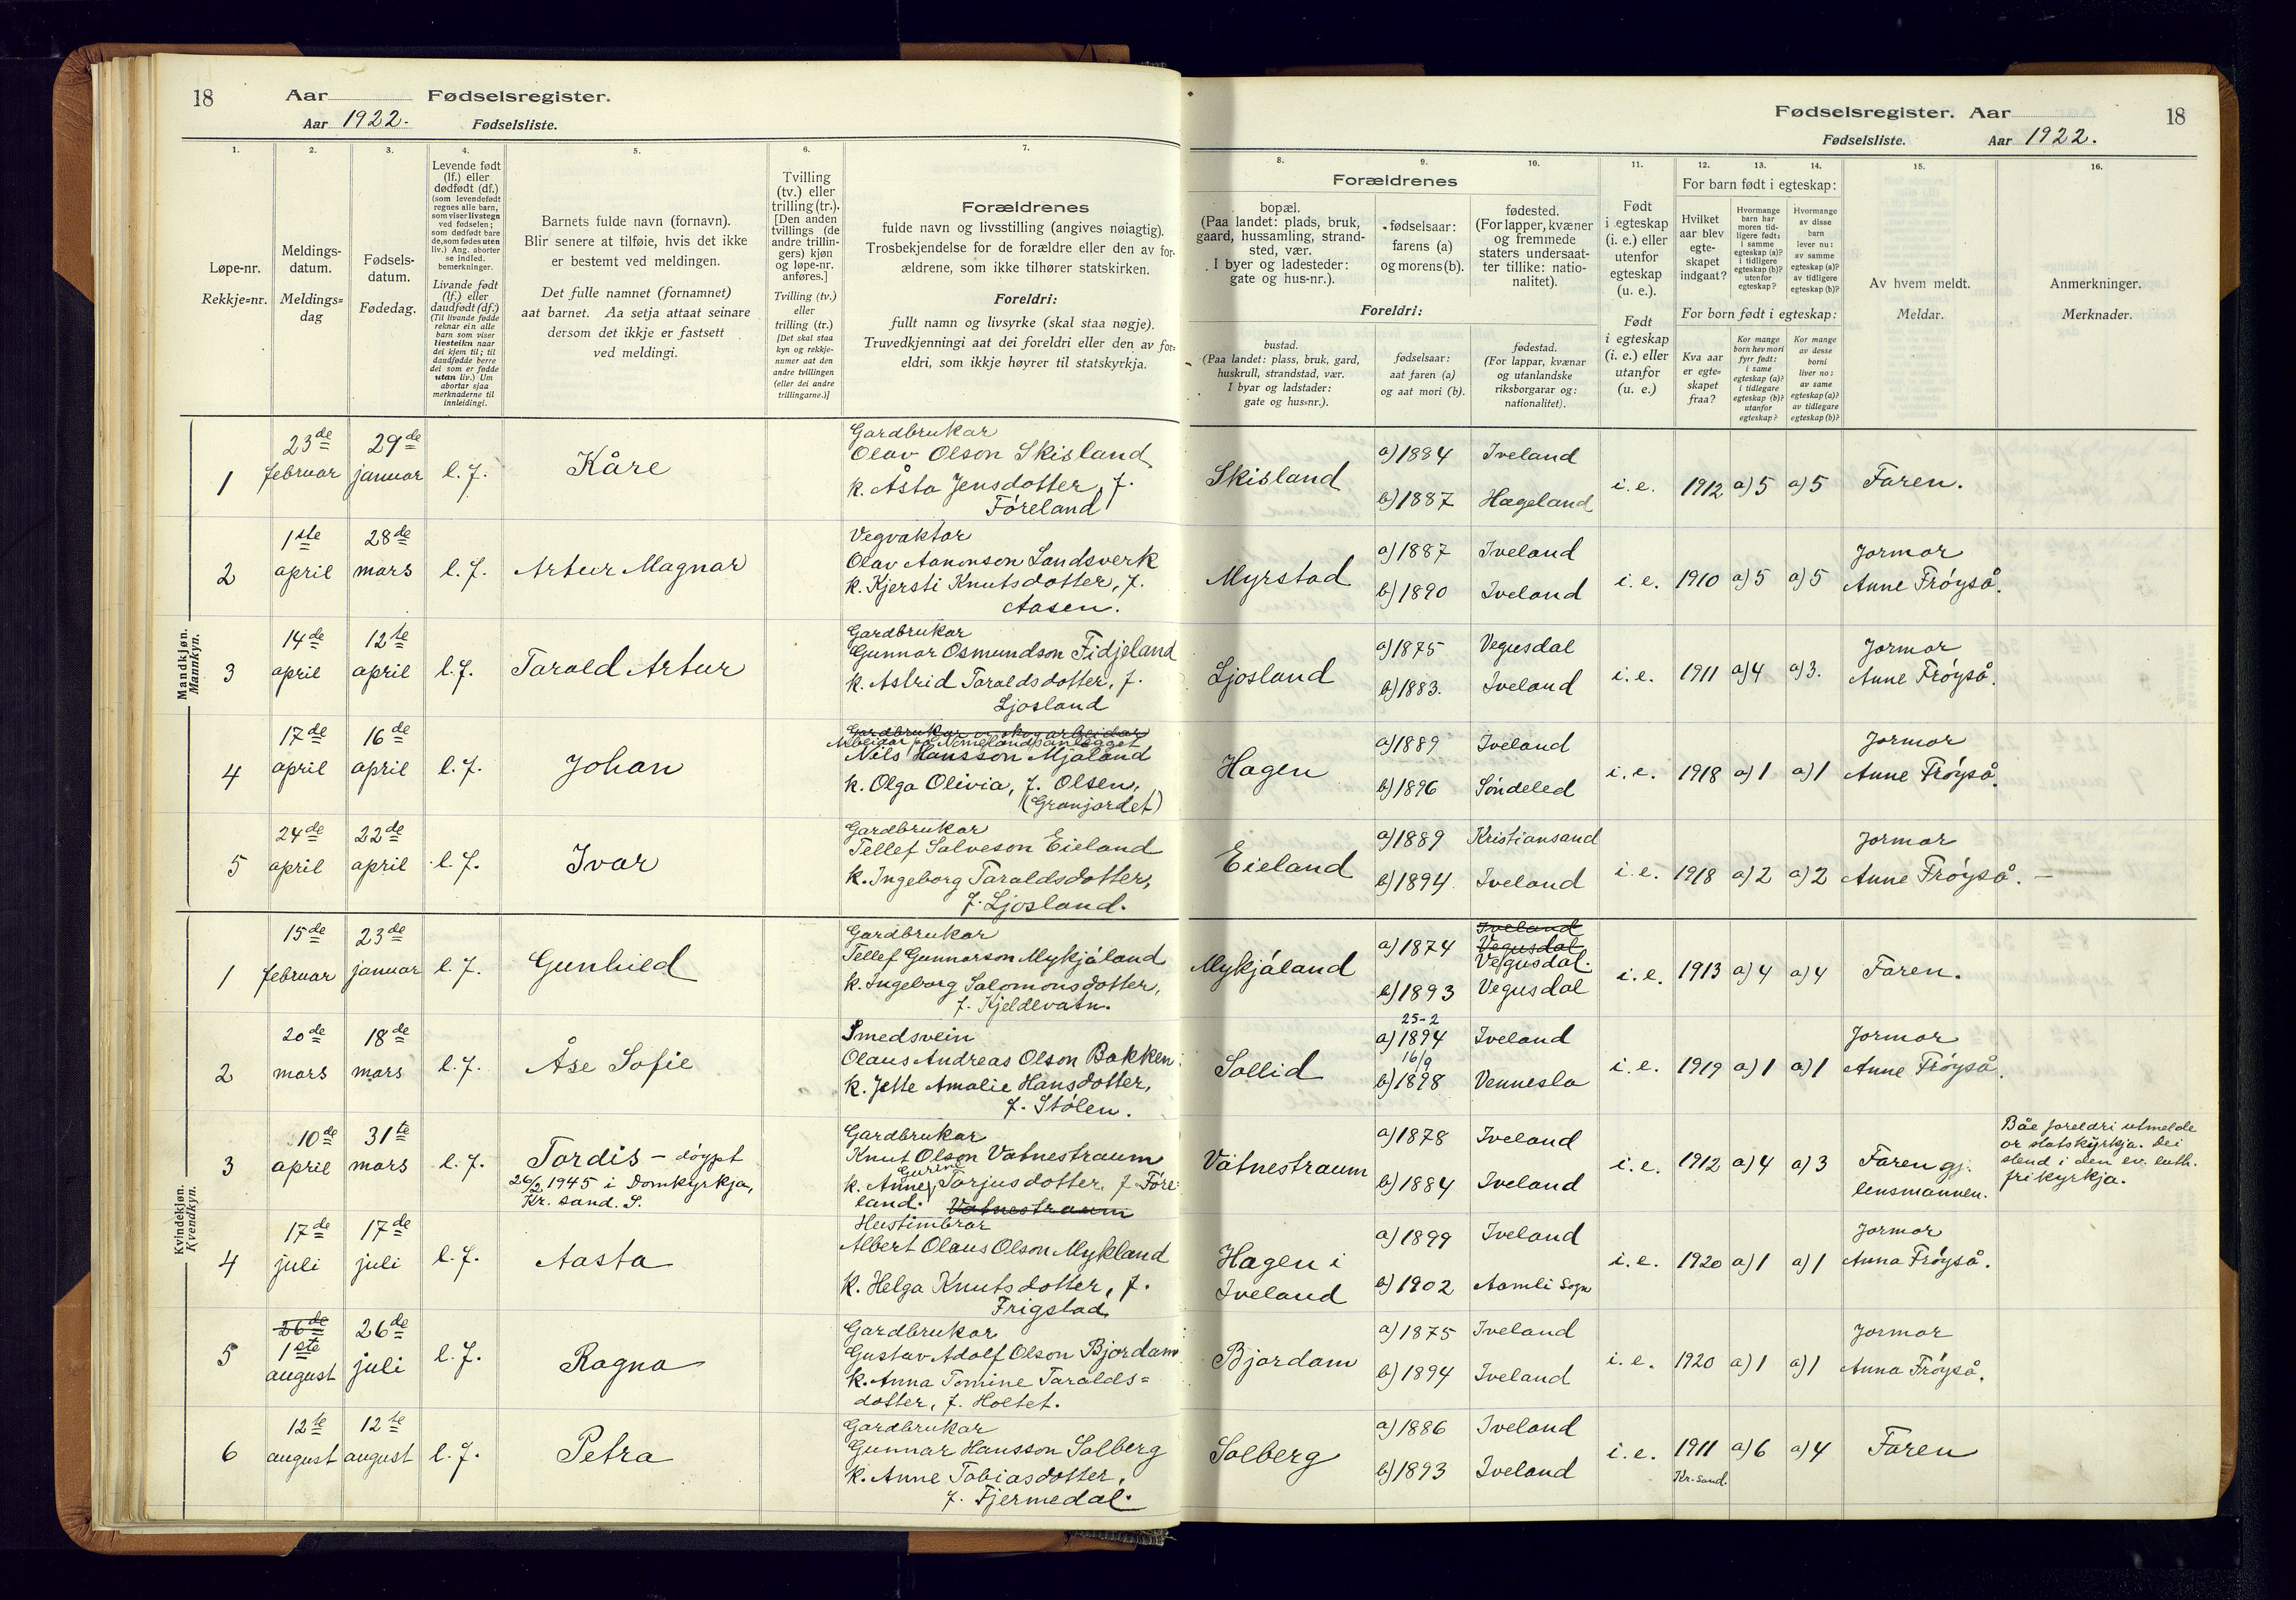 18
Aar Fødselsregister.
Aar 1922. Fødselsliste.
Fødselsregister. Aar 18
Fødselsliste. Aar 1922.
1.
Løpe-nr.
Rekkje=nr.
2.
Meldings-
datum.
Meldings=
dag
3.
Fødsels-
datum.
Fødedag.
4.
Levende født
(lf.) eller
dødfødt (df.)
(som levendefødt
regnes alle barn,
som viser livstegn
ved fødselen;
som dødfødt bare
de, som fødes uten
liv.) Ang. aborter
se indled.
bemerkninger.
Livande født
(lf.) eller
daudfødt (df.)
(Til livande fødde
reknar ein alle
barn som viser
livsteikn naar
dei kjem til; til
daudfødde berre
dei som er fødde
utan liv.) Um
abortar sjaa
merknaderne til
innleidingi.
5.
Barnets fulde navn (fornavn).
Blir senere at tilføie, hvis det ikke
er bestemt ved meldingen.
Det fulle namnet (fornamnet)
aat barnet. Aa setja attaat seinare
dersom det ikkje er fastsett
ved meldingi.
6.
Tvilling
(tv.) eller
trilling (tr.).
[Den anden
tvillings (de
andre trillin-
gers) kjøn
og løpe-nr.
anføres.]
Tvilling (tv.)
eller
trilling (tr.)
[Det skal staa
kyn og rekkje-
numer aat den
andre tvillingen
(eller dei andre
trillingarne.)]
7.
Forældrenes
fulde navn og livsstilling (angives nøiagtig).
Trosbekjendelse for de forældre eller den av for-
ældrene, som ikke tilhører statskirken.
Foreldri:
fullt namn og livsyrke (skal staa nøgje).
Truvedkjenningi aat dei foreldri eller den av for-
eldri, som ikkje høyrer til statskyrkja.
Forældrenes
8.
bopæl.
(Paa landet: plads, bruk,
gaard, hussamling, strand-
sted, vær.
I byer og ladesteder:
gate og hus-nr.).
Foreldri:
bustad.
(Paa landet: plass, bruk, gard,
huskrull, strandstad, vær.
I byar og ladstader:
gate og hus=nr.).
9.
fødselsaar:
farens (a)
og morens (b).
fødselsaar:
aat faren (a)
og aat mori (b).
10.
fødested.
(For lapper, kvæner
og fremmede
staters undersaat-
ter tillike: natio-
nalitet).
fødestad.
(For lappar, kvænar
og utanlandske
riksborgarar og:
nationalitet).
11.
Født
i egteskap
(i. e.) eller
utenfor
egteskap
(u. e.).
Født
i egteskap
(i. e.) eller
utanfor
(u. e.)
12. 13. 14.
For barn født i egteskap:
Hvilket
aar blev
egte-
skapet
indgaat?
Hvormange
barn har
moren tid-
ligere født:
i samme
egteskap (a)?
i tidligere
egteskap (b)?
utenfor
egteskap?
Hvormange
av disse
barn
lever nu:
av samme
egteskap (a)?
av tidligere
egteskap (b)?
For born født i egteskap:
Kva aar
er egte=
skapet
fraa?
Kor mange
born hev mori
fyrr født:
i same
egteskap (a)?
i tidlegare
egteskap (b)?
utanfor
egteskap?
Kor mange
av desse
borni
liver no:
av same
egteskap (a)?
av tidlegare
egteskap (b)?
15.
Av hvem meldt.
Meldar.
16.
Anmerkninger.
Merknader.
Mandkjøn.
Mannkyn.
1
23de
februar
29de
januar
l. f.
Kåre
Gardbrukar
Olav Olson Skisland
k. Åsta Jensdotter, f.
Føreland
Skisland
a) 1884 Iveland
b) 1887 Hægeland
i. e. 1912 a) 5 a) 5 Faren.
2
1ste
april
28de
mars
l. f.
Artur Magnar
Vegvaktar
Olav Aanonson Landsverk
k. Kjersti Knutsdotter, f.
Aasen.
Myrstad
a) 1887 Iveland
b) 1890 Iveland
i. e. 1910 a) 5 a) 5
Jormor
Anne Frøyså.
3
14de
april
12te
april
l. f.
Tarald Artur
Gardbrukar
Gunnar Osmundson Fidjeland
k. Astrid Taraldsdotter, f.
Ljosland
Ljosland
a) 1875 Vegusdal
b) 1883. Iveland
i. e. 1911 a) 4 a) 3.
Jormor
Anne Frøyså.
4
17de
april
16de
april
l. f.
Johan
Gardbrukar og skogarbeidar
Arbeidar på Nomelandsanlegget
Nils Hansson Mjåland
k. Olga Olivia, f. Olsen,
(Granjordet)
Hagen
a) 1889 Iveland
b) 1896 Søndeled
i. e. 1918 a) 1 a) 1
Jormor
Anne Frøyså.
5
24de
april
22de
april
l. f.
Ivar
Gardbrukar
Tellef Salveson Eieland
k. Ingeborg Taraldsdotter,
f. Ljosland.
Eieland
a) 1889 Kristiansand
b) 1894 Iveland
i. e. 1918 a) 2 a) 2
Jormor
Anne Frøyså. —
Kvindekjøn.
Kvendkyn.
1
15de
februar
23de
januar
l. f.
Gunhild
Gardbrukar
Tellef Gunnarson Mykjåland
k. Ingeborg Salomonsdotter,
f. Kjeldevatn.
Mykjåland
a) 1874
Iveland
Vegusdal
Vegusdal.
b) 1893 Vegusdal
i. e. 1913 a) 4 a) 4 Faren.
2
20de
mars
18de
mars
l. f.
Åse Sofie
Smedsvein
Olaus Andreas Olson Bakken
k. Jette Amalie Hansdotter,
f. Stølen.
Sollid
25-2
a) 1894 Iveland
16/9
b) 1898 Vennesla
i. e. 1919 a) 1 a) 1
Jormor
Anne Frøyså.
3
10de
april
31te
mars
l. f.
Tordis – døypt
26/2 1945 i Domkyrkja,
Kr. sand. S.
Gardbrukar
Knut Olson Vatnestraum
Gurine
k. Anne Tarjusdotter, f. Føre-
land. Vatnestraum
Vatnestraum
a) 1878 Iveland
b) 1884 Iveland
i. e. 1912 a) 4 a) 3
Faren gj.
lensmannen.
Båe foreldri utmelde
or statskyrkja. Dei
stend i den ev. luth.
frikyrkja.
4
17de
juli
17de
juli
l. f.
Aasta
Hustimbrar
Albert Olaus Olson Mykland
k. Helga Knutsdotter, f.
Frigstad
Hagen i
Iveland
a) 1899 Iveland
b) 1902 Aamli sogn
i. e. 1920 a) 1 a) 1
Jormor
Anna Frøyså.
5
26de
1ste
august
26de
juli
l. f.
Ragna
Gardbrukar
Gustav Adolf Olson Bjordam
k. Anna Tomine Taralds=
dotter, f. Holtet.
Bjordam
a) 1875 Iveland
b) 1894 Iveland
i. e. 1920 a) 1 a) 1
Jormor
Anna Frøyså.
6
12te
august
12te
august
l. f.
Petra
Gardbrukar
Gunnar Hansson Solberg
k. Anne Tobiasdotter,
f. Fjermedal.
Solberg
a) 1886 Iveland
b) 1893 Iveland
i. e. 1911 a) 6 a) 4 Faren
Kr.sand.